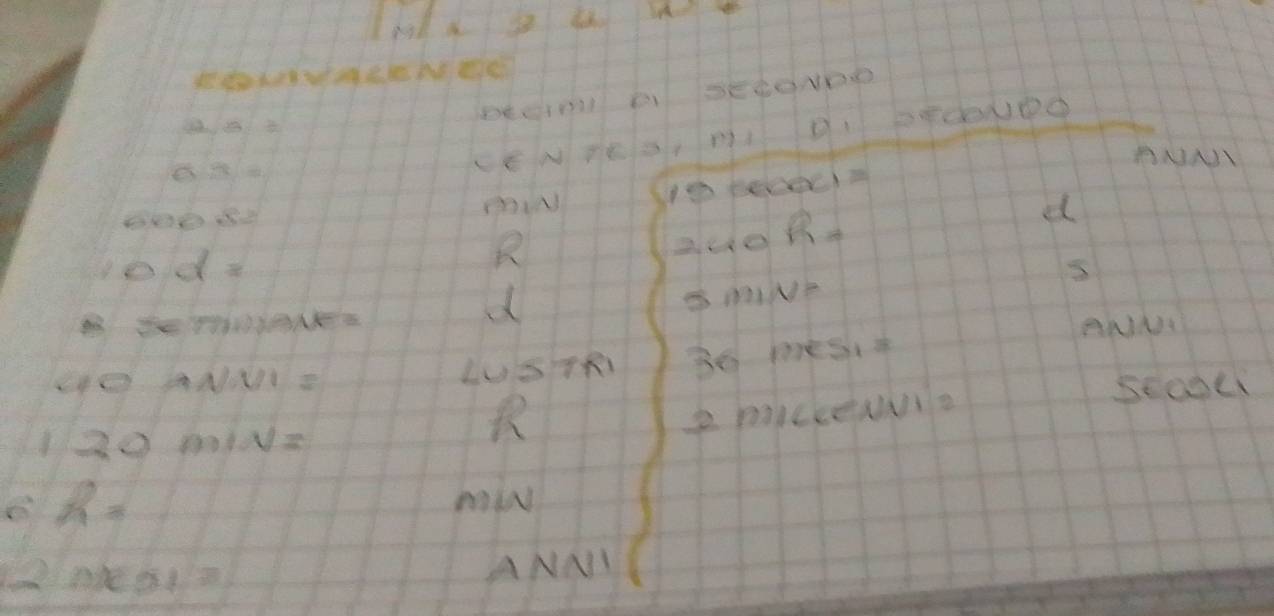 EQUIVALENZE
DECIMI DI SECONDO
CENTESIMI DI SECONDO
600 s= MIN
10 d= h
8 SETTIMANE= d
40 ANNI= LUSTRI
120 MIN= h
6 h= MIN
12 MESI= ANNI
10 SECOLI= ANNI
240 h= d
5 MIN= s
36 MESI= ANNI
2 MILLENNI= SECOLI